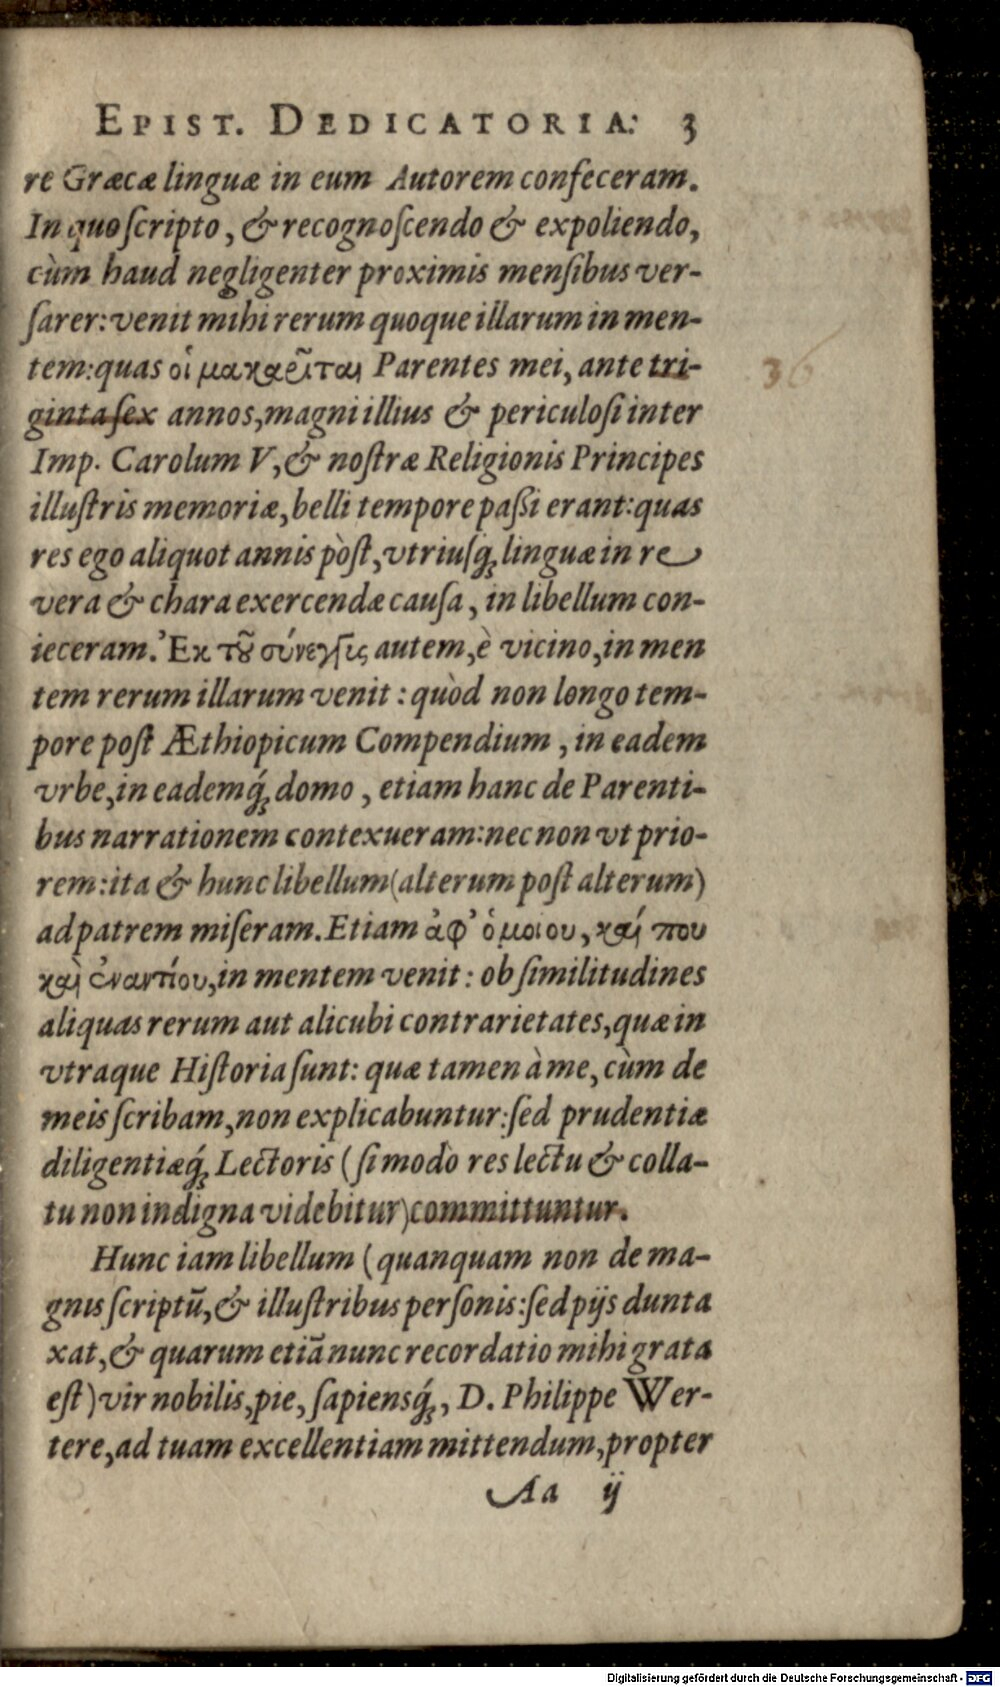 EPIST. DEDICATORIA. 3
re Græcæ linguæ in eum Autorem confeceram.
In quo ſcripto, & recognoſcendo & expoliendo,
cùm haud negligenter proximis menſibus ver-
ſarer: venit mihi rerum quoque illarum in men-
tem: quas οἱ μακαρῖται Parentes mei, ante tri-
ginta ſex annos, magni illius & periculoſi inter
36
Imp. Carolum V, & noſtræ Religionis Principes
illuſtris memoriæ, belli tempore paßi erant: quas
res ego aliquot annis pòſt, vtriuſq́; linguæ in re
vera & chara exercendæ cauſa, in libellum con-
ieceram. Ἐκ τοῦ σύνεγγυς autem, è vicino, in men
tem rerum illarum venit: quòd non longo tem-
pore poſt Æthiopicum Compendium, in eadem
vrbe, in eademq́; domo, etiam hanc de Parenti-
bus narrationem contexueram: nec non vt prio-
rem: ita & hunc libellum (alterum poſt alterum)
ad patrem miſeram. Etiam ἀφ’ ὁμοιου, καί που
καὶ ἐναντίου, in mentem venit: ob ſimilitudines
aliquas rerum aut alicubi contrarietates, quæ in
vtraque Hiſtoria ſunt: quæ tamen à me, cùm de
meis ſcribam, non explicabuntur: ſed prudentiæ
diligentiæq́; Lectoris (ſi modò res lectu & colla-
tu non indigna videbitur) committuntur.
Hunc iam libellum (quanquam non de ma-
gnis ſcriptũ, & illuſtribus perſonis: ſed pijs dunta
xat, & quarum etiã nunc recordatio mihi grata
eſt) vir nobilis, pie, ſapiensq́;, D. Philippe Wer-
tere, ad tuam excellentiam mittendum, propter
Aa ij
Digitalisierung gefördert durch die Deutsche Forschungsgemeinschaft - DFG